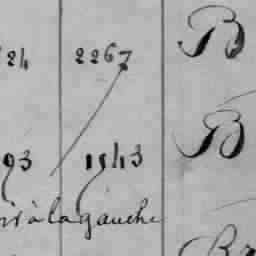 24 2267 B
93 1543 B
à la gauche